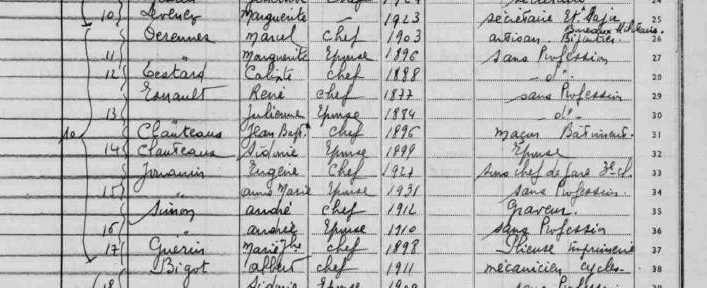 10 Marguerite - 1923 secrétaire Et. 25
Bureaux Militaires.
Derennes Marcel chef 1903 artisan Bijoutier. 26
11 " Marguerite Epouse 1896 sans Profession 27
12 Testard Calixte chef 1898 - d° - 28
Esnault René chef 1877 sans Profession 29
13 " Julienne Epouse 1884 - d° - 30
10 Chauteaux Jean Bapt. chef 1896 maçon Batiment. 31
14 Chauteaux Sidonie Epouse 1899 Epouse 32
Jouanin Eugène Chef 1927 sous chef de gare 3e cl. 33
15 " anne Marie Epouse 1931 sans Profession. 34
Simon andré Chef 1912 Graveur. 35
16 " andrée Epouse 1910 sans Profession 36
17 Guérin Marie Jhe chef 1898 Plieuse imprimerie 37
Bigot albert chef 1911 mécanicien cycles- 38
18 Sidonie Epouse sans Profession